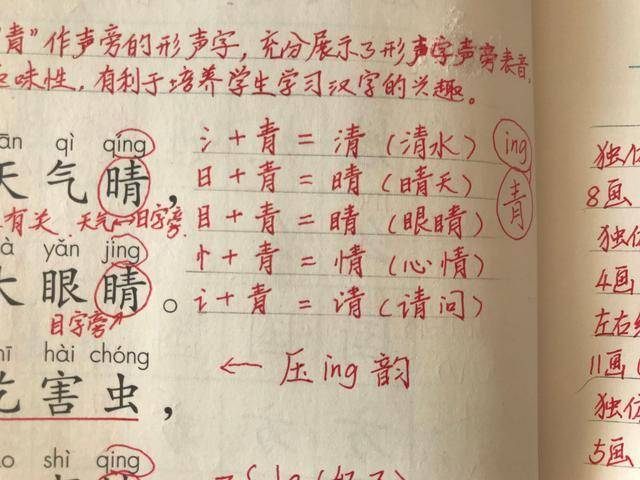 青"作声旁的形声字，充分展示了形声字声旁表音，
味性，有利于培养学生学习汉字的兴趣。
qì qíng
天气晴，
氵+青=清（清水） ing
日+青=晴（晴天） 青
目+青=睛（眼睛）
忄+青=情（心情）
讠+青=请（请问）
有关 天气 日字旁
yǎn jīng
大眼睛。
目字旁
hài chóng
吃害虫，
← 压ing韵
shì qing
独体
8画
独体
4画
左右结
11画
独体
5画